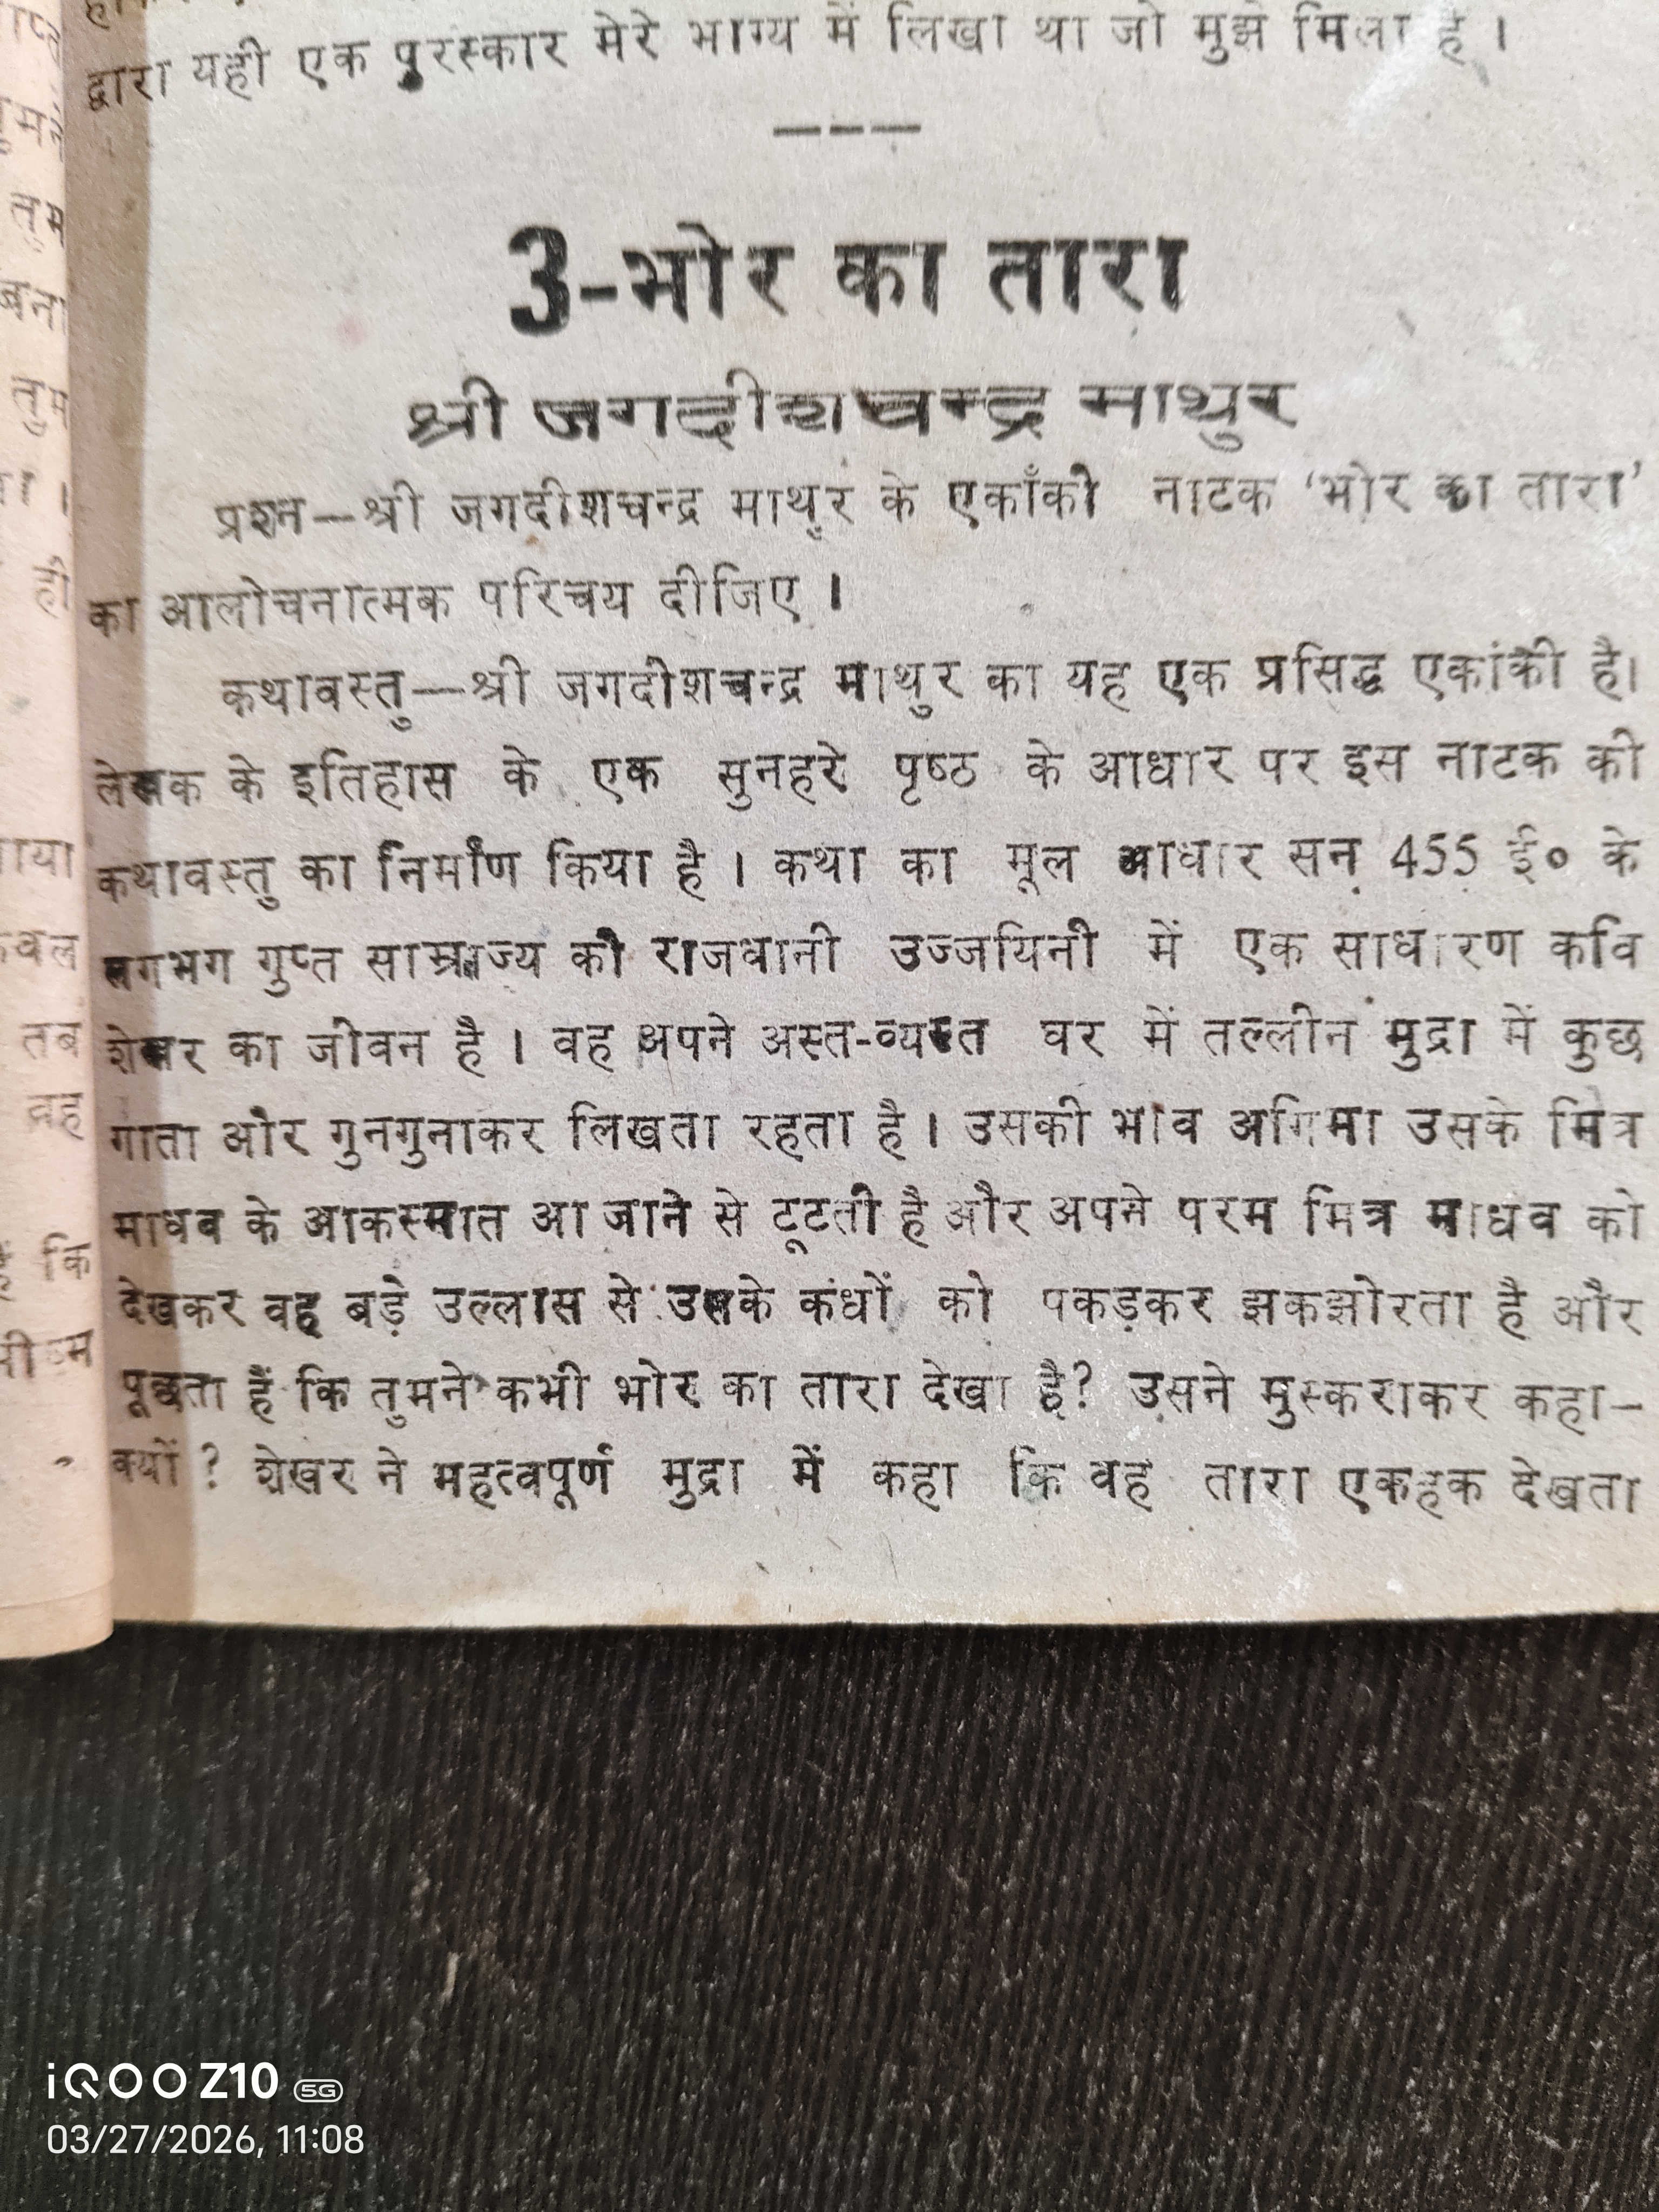 द्वारा यही एक पुरस्कार मेरे भाग्य में लिखा था जो मुझे मिला है ।
———
3-भोर का तारा
श्री जगदीशचन्द्र माथुर
प्रश्न—श्री जगदीशचन्द्र माथुर के एकाँकी नाटक ‘भोर का तारा’
का आलोचनात्मक परिचय दीजिए ।
कथावस्तु—श्री जगदीशचन्द्र माथुर का यह एक प्रसिद्ध एकांकी है।
लेखक के इतिहास के एक सुनहरे पृष्ठ के आधार पर इस नाटक की
कथावस्तु का निर्माण किया है । कथा का मूल आधार सन् 455 ई० के
लगभग गुप्त साम्राज्य की राजधानी उज्जयिनी में एक साधारण कवि
शेखर का जीवन है । वह अपने अस्त-व्यस्त घर में तल्लीन मुद्रा में कुछ
गाता और गुनगुनाकर लिखता रहता है । उसकी भाव अगिमा उसके मित्र
माधव के आकस्मात आ जाने से टूटती है और अपने परम मित्र माधव को
देखकर वह बड़े उल्लास से उसके कंधों को पकड़कर झकझोरता है और
पूछता है कि तुमने कभी भोर का तारा देखा है? उसने मुस्कराकर कहा—
क्यों ? शेखर ने महत्वपूर्ण मुद्रा में कहा कि वह तारा एकहक देखता
तुम
ही
तब
कि
iQOO Z10 5G
03/27/2026, 11:08